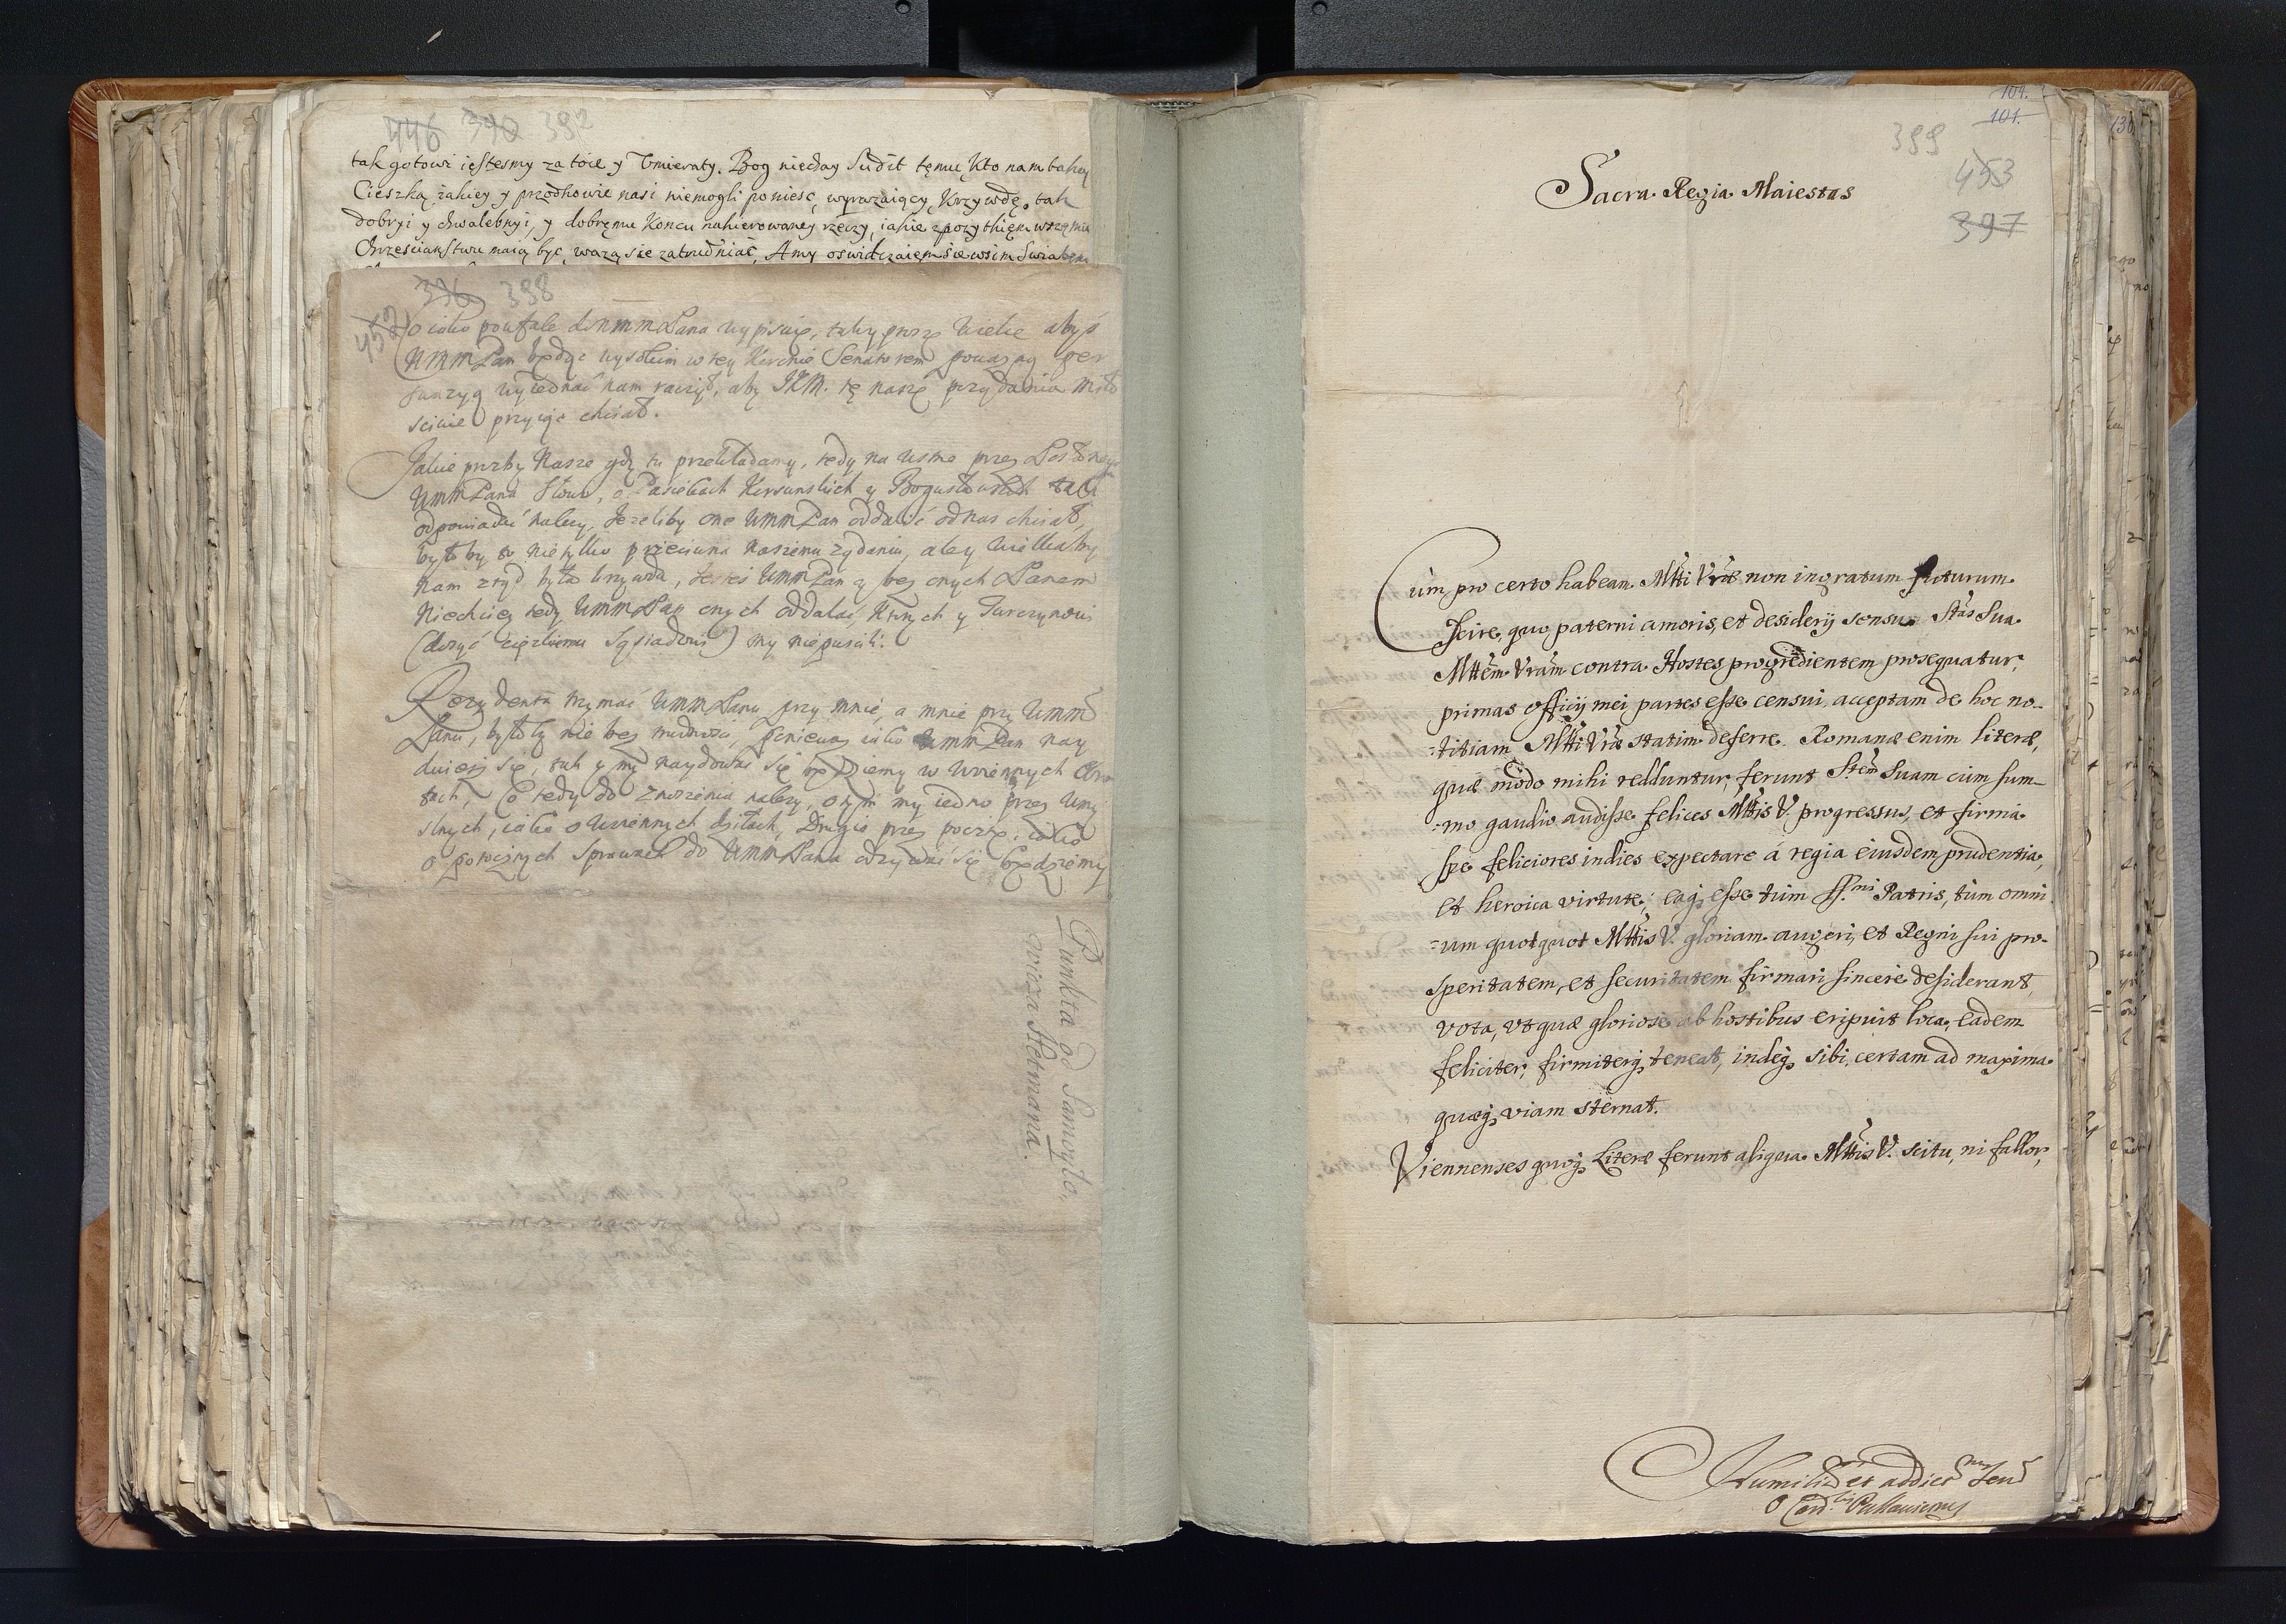 446 390 392
tak gotowi iestesmy za toie y Umieraty. Bog niechay Sudit temu, Kto nam takuj
Cieszką żakiey y przodkowie nasi niemogli poniesc, wyrażaiący Krzywdę, tak
dobryi y chwalebnyi, y dobremu Koncu nakierowaney rzeczy, iakie zpożythiem
Chrześcianstwu maią byc, ważą sie zatrudniać, A my oswidczaiem sie wsim Swiatem
396 398
452
To iako poufale do UmmPana wypisuię, tak y proszę wielce abyś
UmmPan będąc wysokim w tey Koronie Senatorem powagą y per
suazyą wyiednać nam raczył, aby JKM. tę nasze przydania Miło
sciwie przyiąć chciał.
Jakie prozby Nasze gdy tu przekładamy, tedy na ustne przez Posłanego
UmmPana Słowa, o Pasiekach Korsunskich y Bogusławskich tak
odpowiadać należy, Jezeliby one UmmPan oddalić od nas chciał,
byłoby to nietylko przeciwna naszemu żądaniu, ale y wielkaby
nam ztąd była krzywda, Jesteś UmmPan y bez onych Panem
Niechciey tedy UmmPan onych oddalać, Których y Turczynowi
(dosyć ciężkiemu Sąsiadowi) my niepuscili.
Rezydenta trzymać UmmPanu przy mnie, a mnie przy Umm
Panu, byłoby nie bez trudności, ponieważ iako UmmPan nay
duiesz się, tak y my naydować się będziemy w woiennych Obro
tach, Co tedy do Znoszenia należy, o tym my iedno przez umy
slnych, iako o woiennych dziłach, Drugie przez pocztę, iako
o potocznych Sprawach do UmmPana odzywać się będziemy
Punkta od Samuyło,
wicza Hetmana.
104.
101.
399
453
397
130
Sacra Regia Maiestas
Cum pro certo habeam Mtti Vrae non ingratum futurum
scire, quo paterni amoris, et desiderij sensu Stas Sua
Mttem Vram contra Hostes progredientem prosequatur,
primas officij mei partes esse censui, acceptam de hoc no-
-titiam Mtti Vrae statim deferre. Romanae enim literae,
quae modo mihi redduntur, ferunt Stem Suam cum sum-
-mo gaudio audisse felices Mttis V. progressus, et firma
spe feliciores indies expectare à regia eiusdem prudentia,
et heroica virtute; eaq; esse tum SS.mi Patris, tum omni
-um quotquot Mttis V. gloriam augeri, et Regni sui pro-
speritatem, et securitatem firmari sincere desiderant,
vota, ut quae gloriose ab hostibus eripuit loca, eadem
feliciter, firmiterq; teneat, indeq; sibi certam ad maxima
quaeq; viam sternat.
Viennenses quoq; Literae ferunt aliqua Mttis V. scitu, ni fallor,
Humilis et addict.mus Seru
O Card.lis Pallavicinus